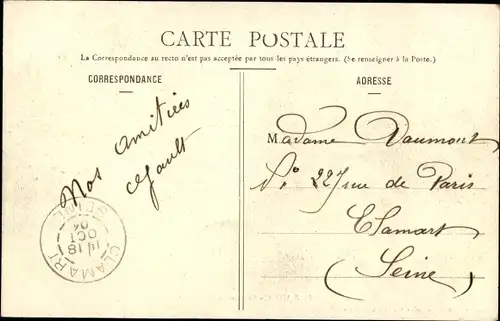 CARTE POSTALE
La Correspondance au recto n'est pas acceptée par tous les pays étrangers. (Se renseigner à la Poste.)
CORRESPONDANCE
Nos amitiés
CLAMART
18
OCT
04
SEINE
ADRESSE
Madame Daumont
No. 227 rue de Paris
Clamart
(Seine)